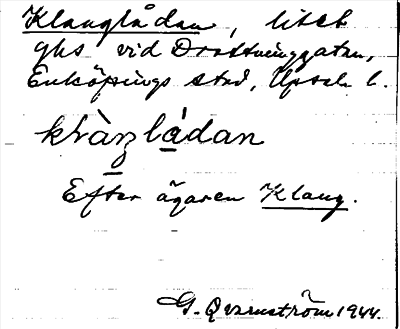 Klanglådan, litet
ghs vid Drottninggatan,
Enköpings stad, Upsala l.
klàŋlådan
Efter ägaren Klang.
G. Qvarnström 1944.